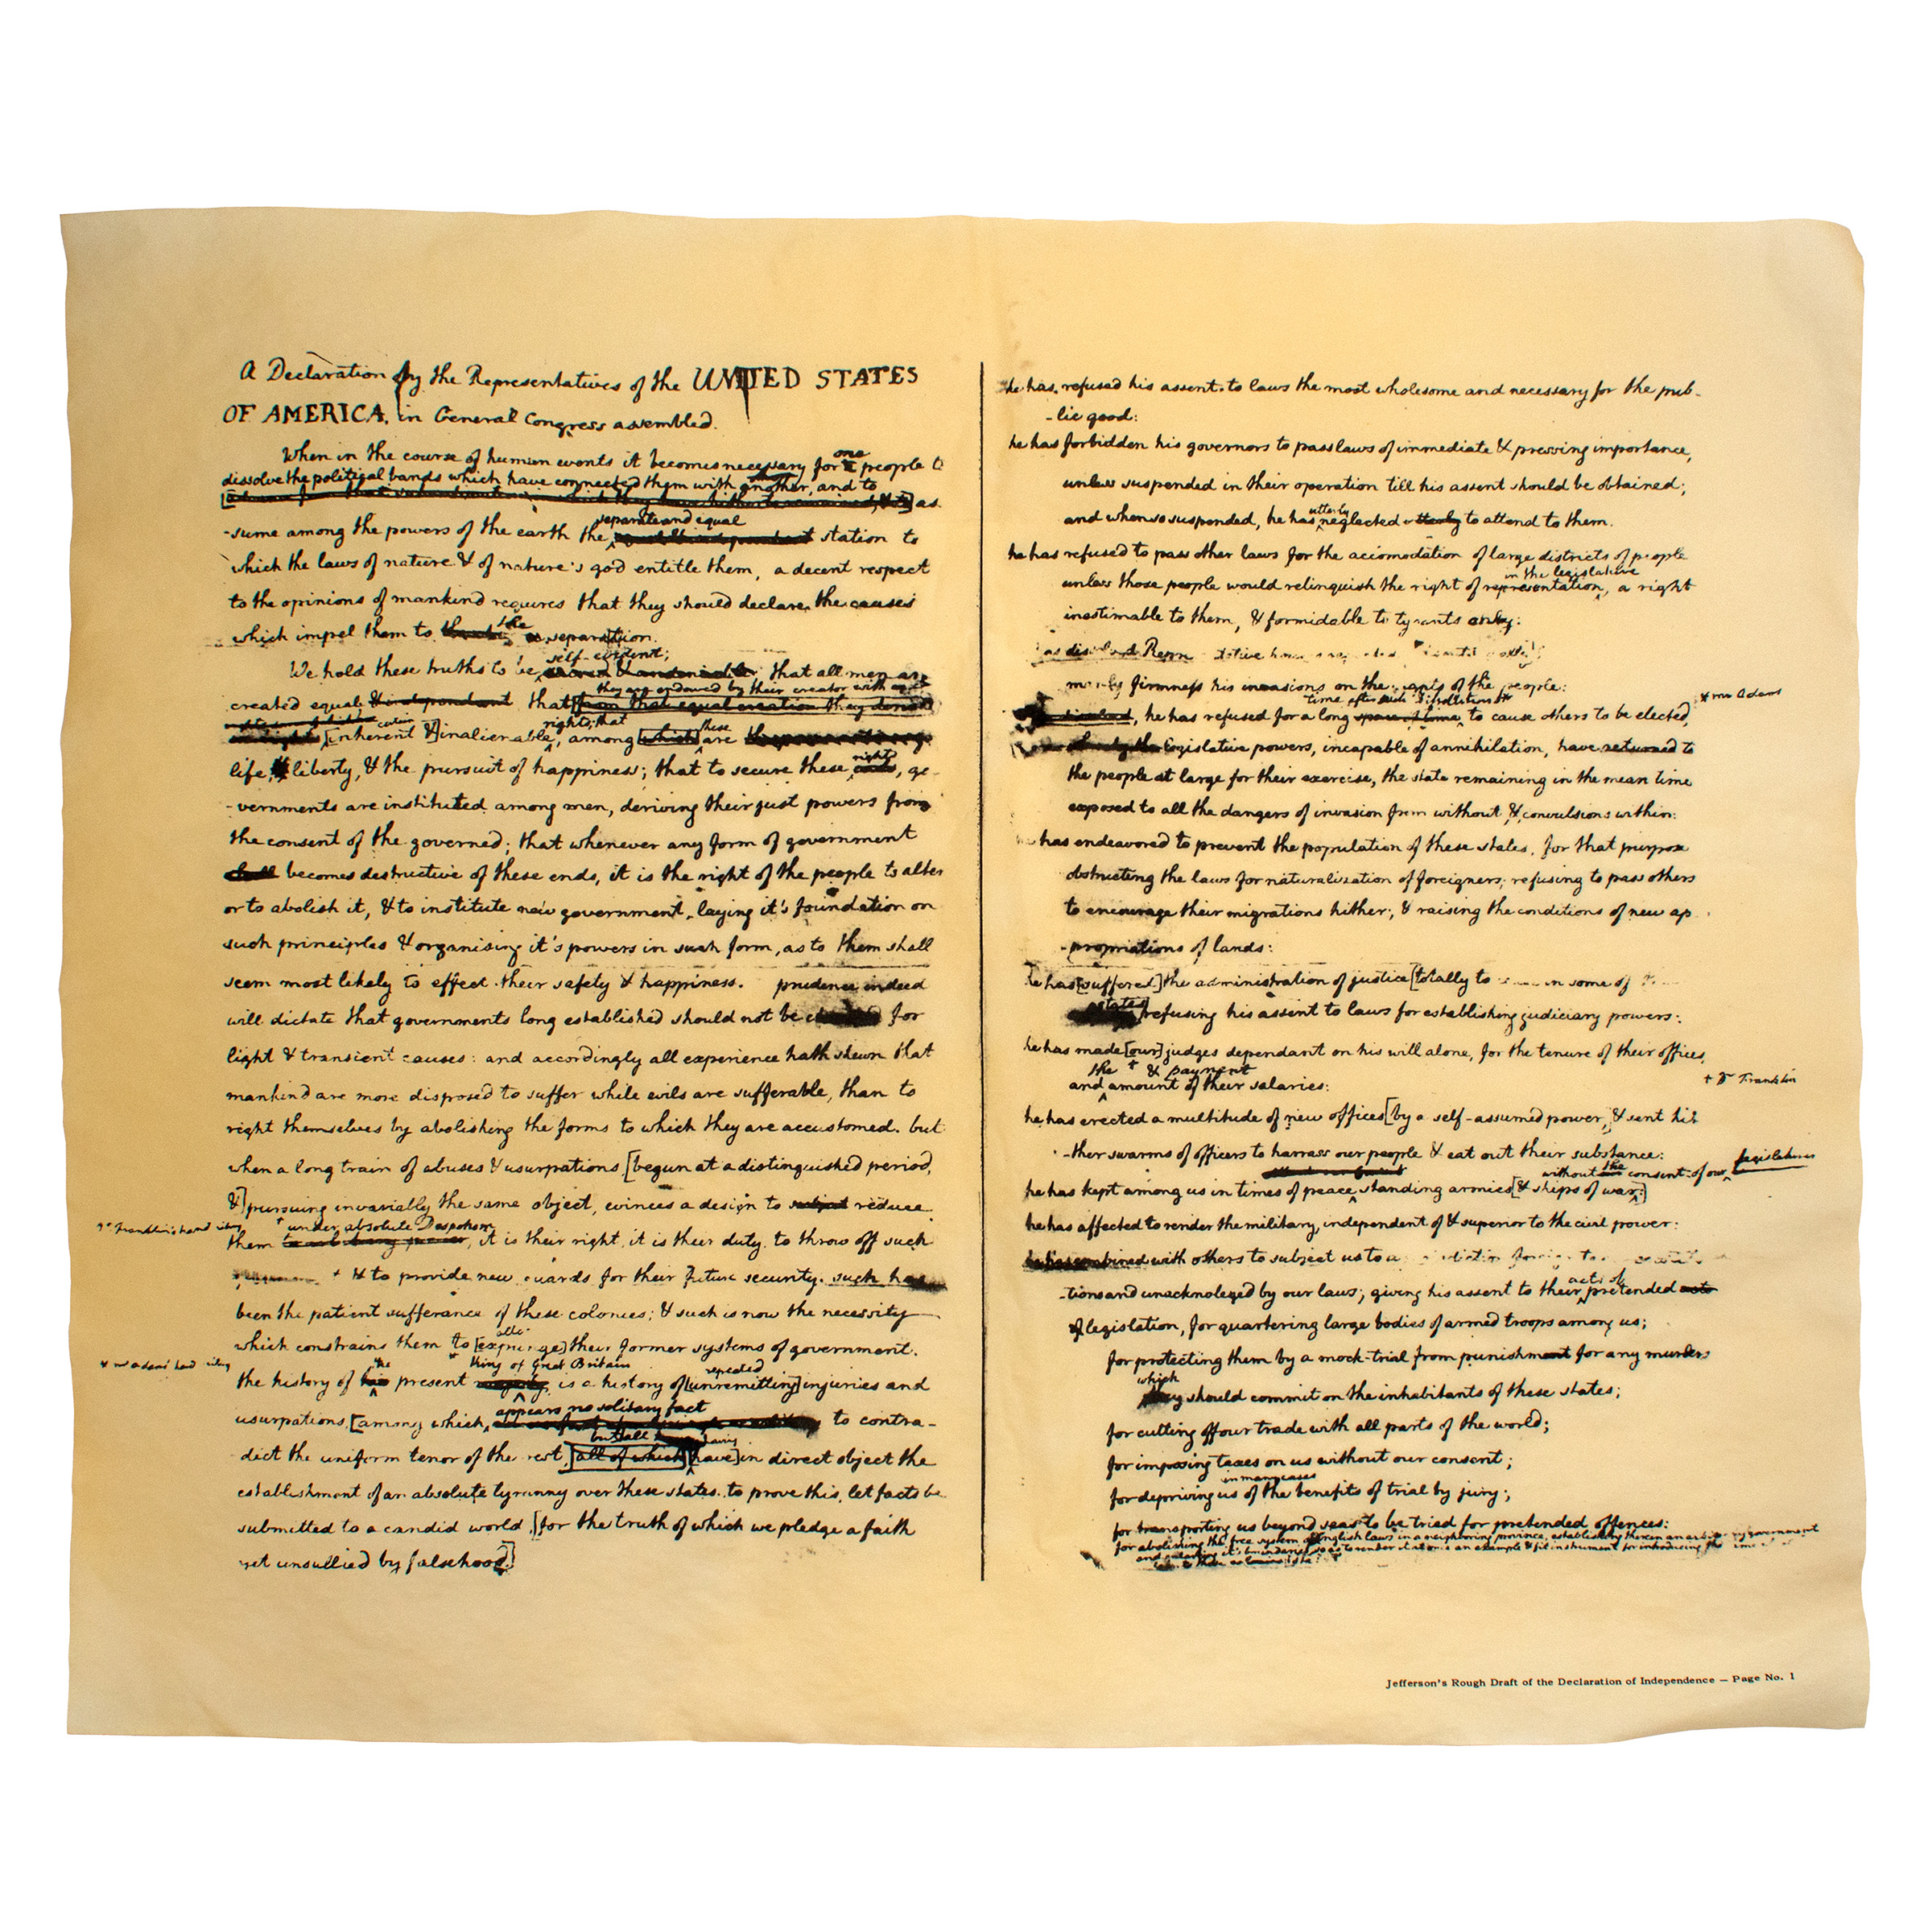 A Declaration by the Representatives of the UNITED STATES
OF AMERICA, in General Congress assembled.
When in the course of human events it becomes necessary for one people to
dissolve the political bands which have connected them with another, and to
as
-sume among the powers of the earth the separate and equal station to
which the laws of nature & of nature's god entitle them, a decent respect
to the opinions of mankind requires that they should declare the causes
which impel them to the separation.
We hold these truths to be self-evident; sacred & undeniable that all men are
created equal & independant that they are endowed by their creator with
from that equal creation they derive
certain [inherent &] inalienable rights; that among [which] these are
life, & liberty, & the pursuit of happiness; that to secure these rights, go-
-vernments are instituted among men, deriving their just powers from
the consent of the governed; that whenever any form of government
shall becomes destructive of these ends, it is the right of the people to alter
or to abolish it, & to institute new government, laying it's foundation on
such principles & organising it's powers in such form, as to them shall
seem most likely to effect their safety & happiness. prudence indeed
will dictate that governments long established should not be for
light & transient causes: and accordingly all experience hath shewn that
mankind are more disposed to suffer while evils are sufferable, than to
right themselves by abolishing the forms to which they are accustomed. but
when a long train of abuses & usurpations [begun at a distinguished period,
&] pursuing invariably the same object, evinces a design to subject reduce
† under absolute Despotism
them , it is their right, it is their duty, to throw off such
& to provide new guards for their future security. such has
been the patient sufferance of these colonies; & such is now the necessity
which constrains them to [expunge] alter their former systems of government.
* mr Adams' hand writing
the history of the present king of Great Britain majesty, is a history of [unremitting] repeated injuries and
usurpations, [among which, appears no solitary fact to contra-
-dict the uniform tenor of the rest, but all [all of which] [have] in direct object the
establishment of an absolute tyranny over these states. to prove this, let facts be
submitted to a candid world, [for the truth of which we pledge a faith
yet unsullied by falsehood]
he has refused his assent to laws the most wholesome and necessary for the pub-
-lic good:
he has forbidden his governors to pass laws of immediate & pressing importance,
unless suspended in their operation till his assent should be obtained;
and when so suspended, he has utterly neglected utterly to attend to them.
he has refused to pass other laws for the accomodation of large districts of people
unless those people would relinquish the right of representation in the legislature, a right
inestimable to them, & formidable to tyrants only:
firmness his invasions on the rights of the people:
time after such dissolutions * mr Adams
dissolved, he has refused for a long space of time to cause others to be elected,
whereby the legislative powers, incapable of annihilation, have returned to
the people at large for their exercise, the state remaining in the mean time
exposed to all the dangers of invasion from without & convulsions within:
has endeavored to prevent the population of these states, for that purpose
obstructing the laws for naturalization of foreigners; refusing to pass others
to encourage their migrations hither; & raising the conditions of new ap-
-propriations of lands:
he has [suffered] the administration of justice [totally to in some of
states] refusing his assent to laws for establishing judiciary powers:
he has made [our] judges dependant on his will alone, for the tenure of their offices,
and the † & payment amount of their salaries:
† Dr Franklin
he has erected a multitude of new offices [by a self-assumed power,] & sent hi-
-ther swarms of officers to harrass our people & eat out their substance:
he has kept among us in times of peace standing armies [& ships of war:] without the consent of our legislatures
he has affected to render the military, independent of & superior to the civil power:
he has combined with others to subject us to a
-tions and unacknoleged by our laws; giving his assent to their acts of pretended acts
of legislation, for quartering large bodies of armed troops among us;
for protecting them by a mock-trial from punishment for any murders
which they should commit on the inhabitants of these states;
for cutting off our trade with all parts of the world;
for imposing taxes on us without our consent;
for depriving us in many cases of the benefits of trial by jury;
for transporting us beyond seas to be tried for pretended offences:
for abolishing the free system of English laws in a neighboring province, establishing therein an government
Jefferson's Rough Draft of the Declaration of Independence — Page No. 1